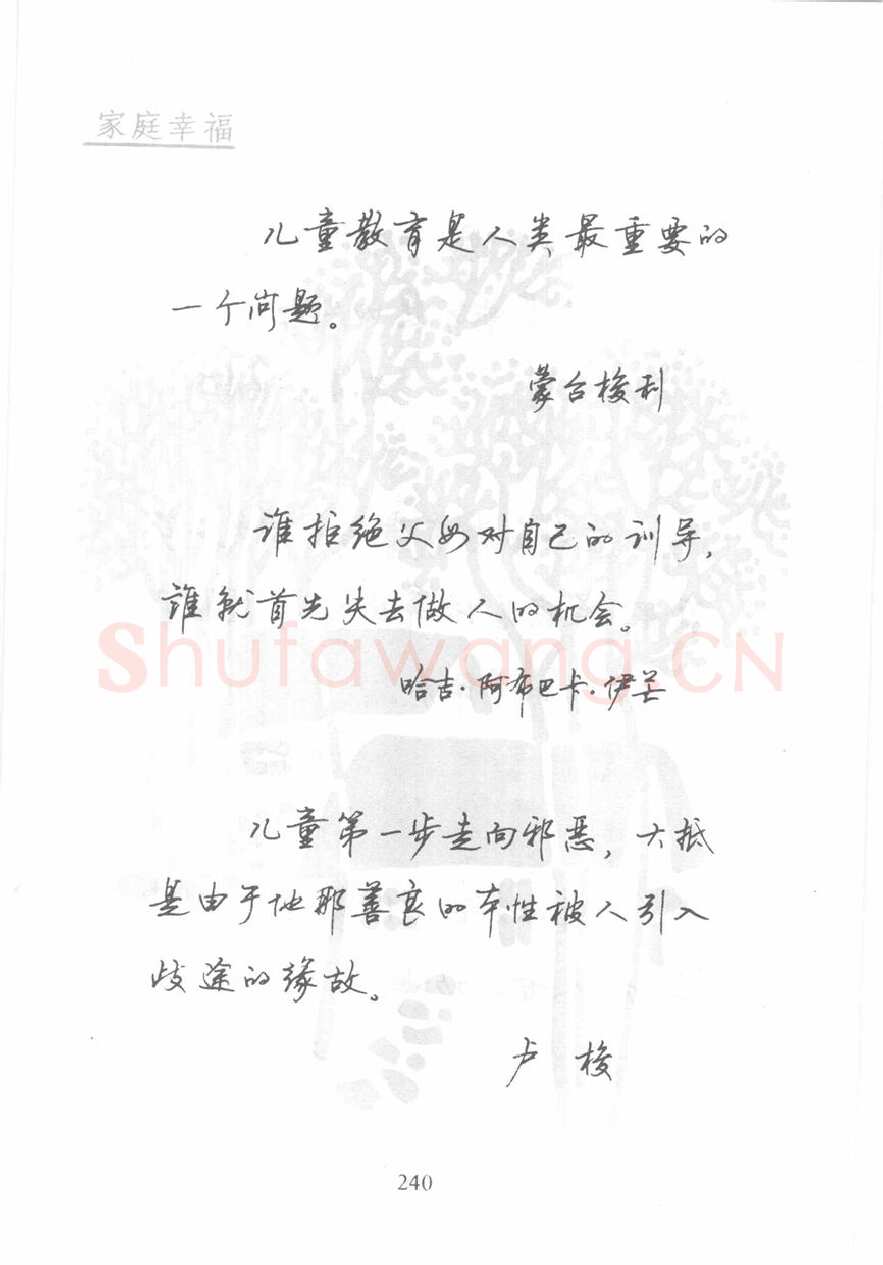 家庭幸福
儿童教育是人类最重要的
一个问题。
蒙台梭利
谁拒绝父母对自己的训导，
谁就首先失去做人的机会。
Shufawang.CN
哈吉·阿布巴卡·伊芒
儿童第一步走向邪恶，大抵
是由于他那善良的本性被人引入
歧途的缘故。
卢梭
240